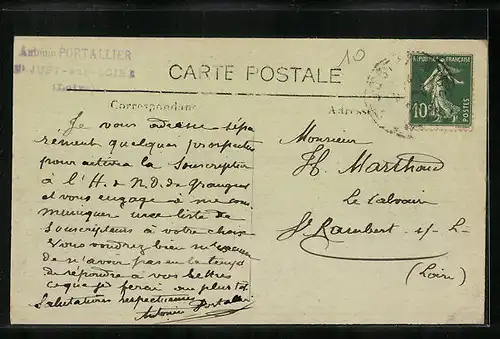 Antoine PORTALLIER
St JUST-sur-LOIRE
(Loire)
10
CARTE POSTALE
REPUBLIQUE FRANÇAISE
10c
POSTES
Correspondance
Adresse
Je vous adresse sépa
rément quelques prospectus
pour activer la souscription
à l'H. de N.D. de Grangent
et vous engage à me com
muniquer une liste de
souscripteurs à votre choix
Vous voudrez bien m'excuser
de n'avoir pas eu le temps
de répondre à vos lettres
ce que je ferai au plus tot.
Salutations respectueuses
Antoine Portallier
Monsieur
H. Marthoud
Le Calvaire
St Rambert s/- L-
(Loire)